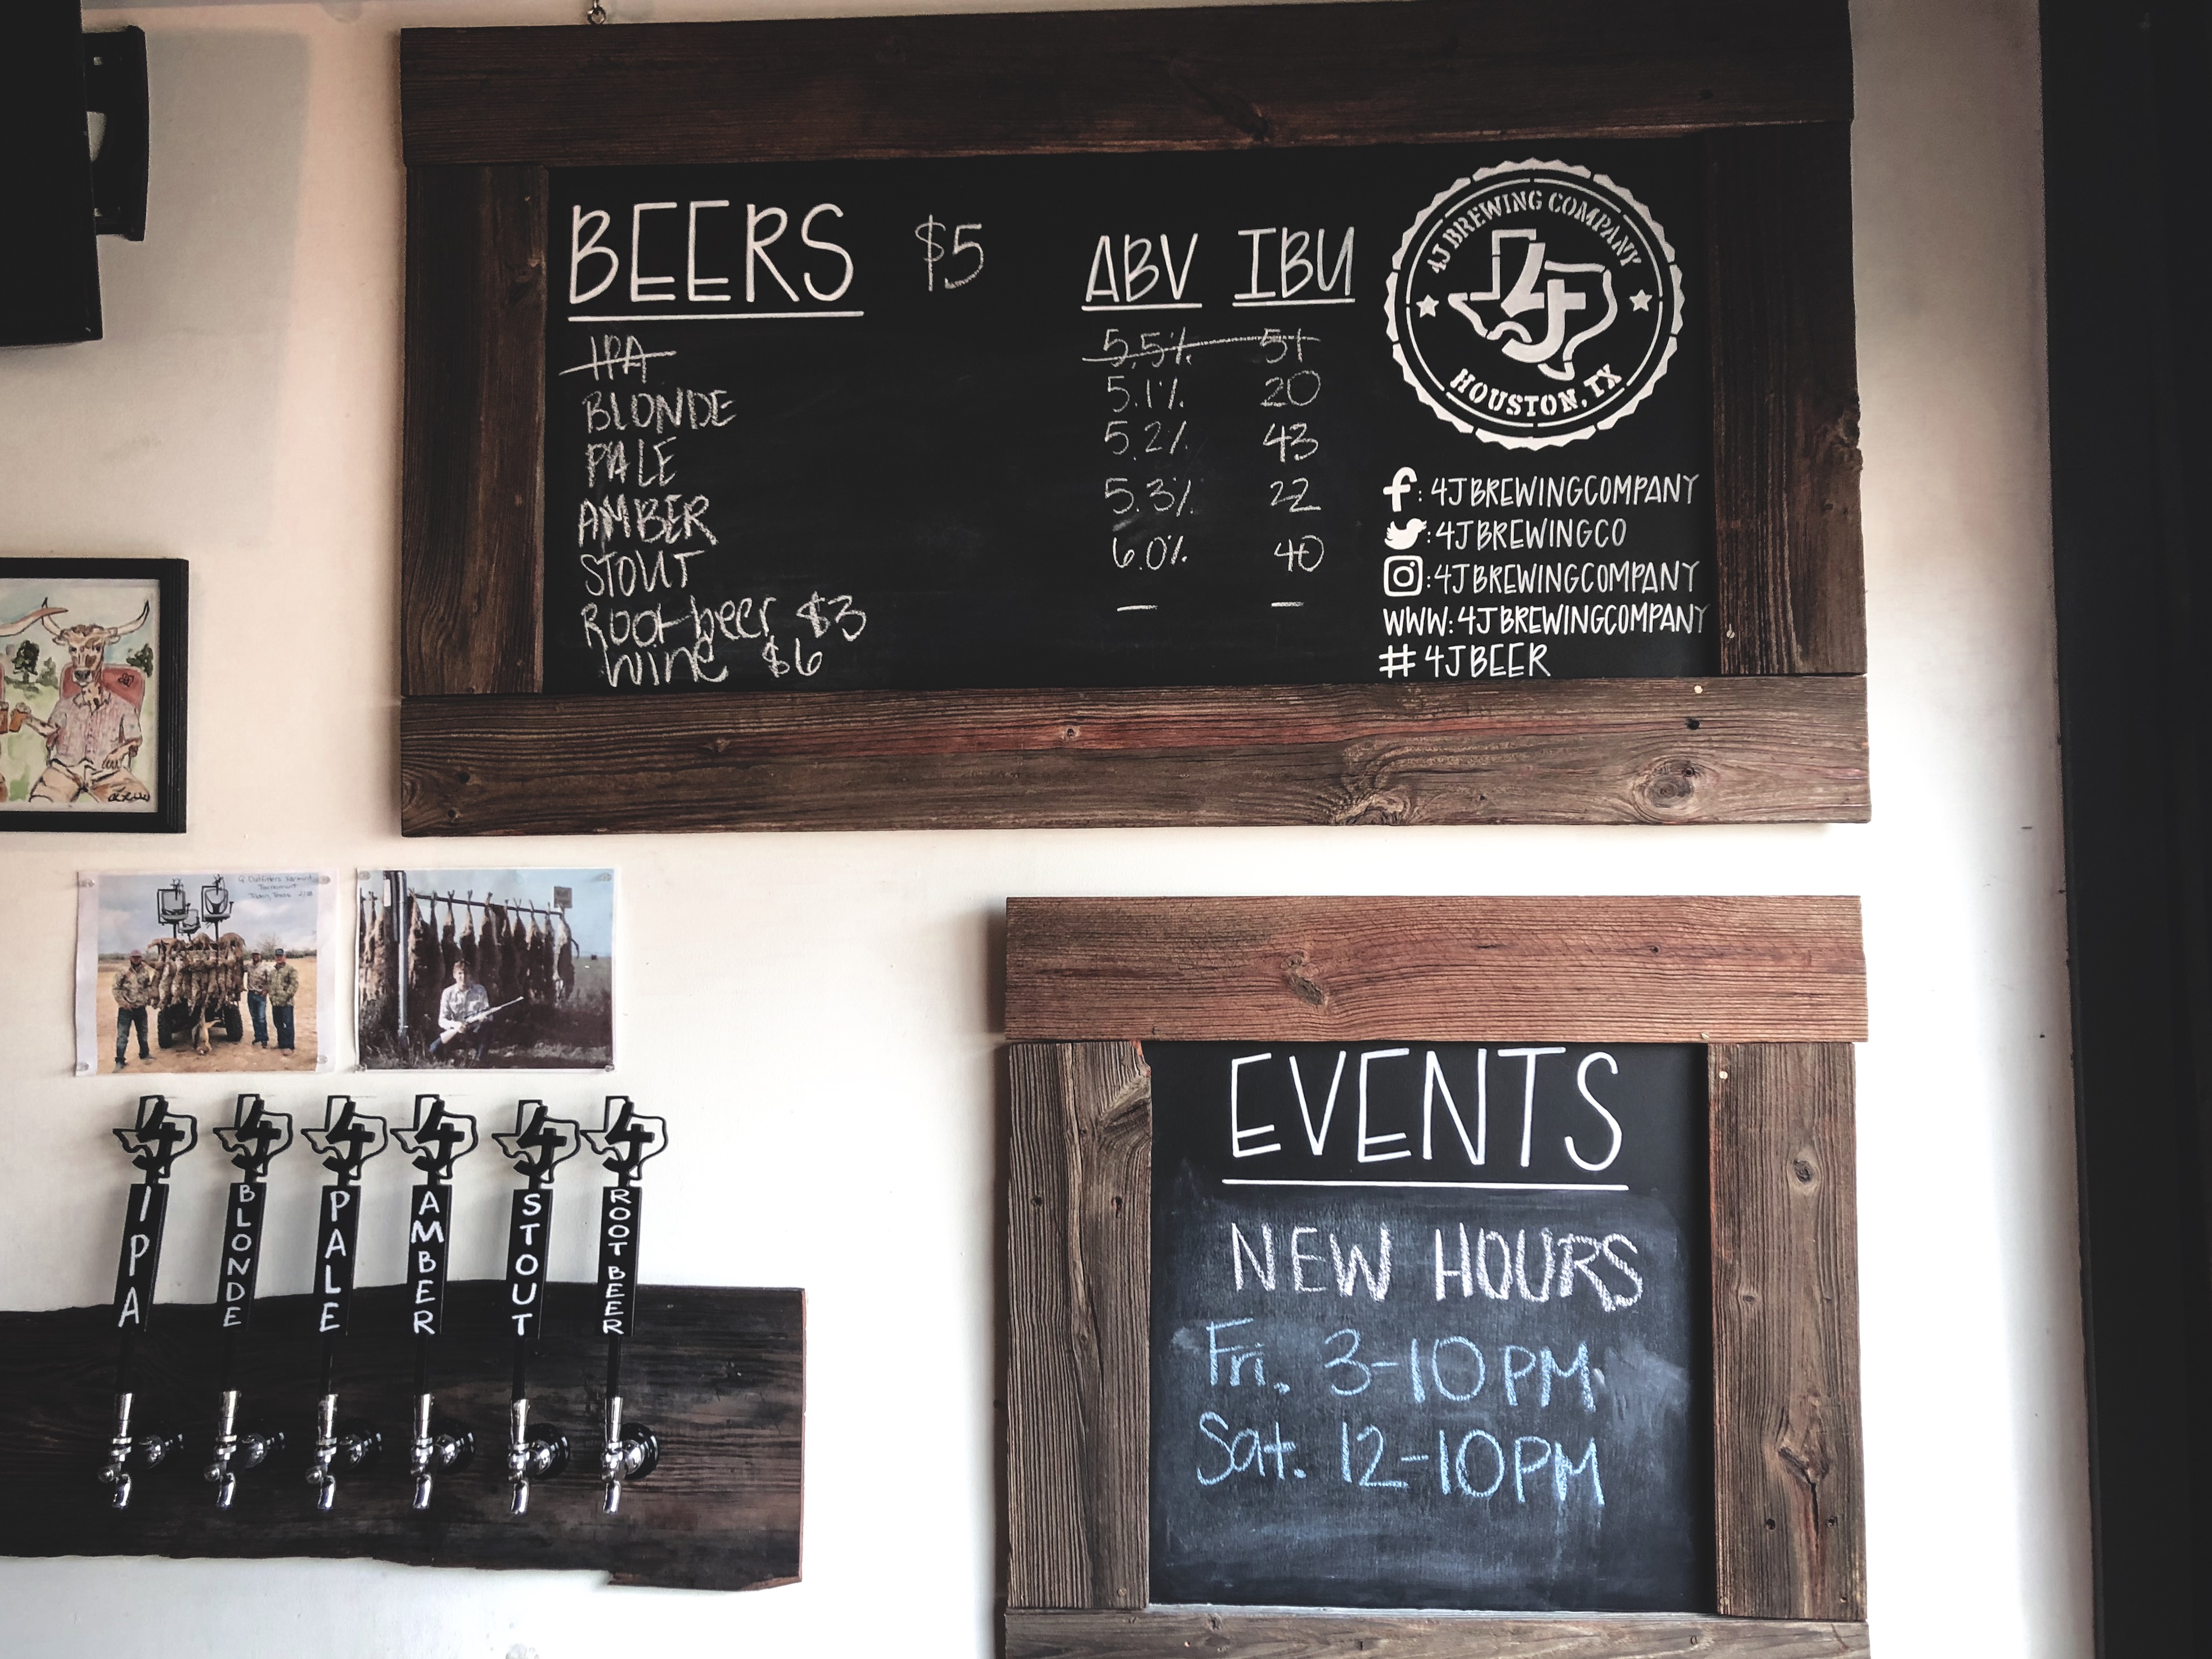 BEERS $5 ABV IBU
IPA 5.5% 51
BLONDE 5.1% 20
PALE 5.2% 43
AMBER 5.3% 22
STOUT 6.0% 40
Root beer $3 — —
wine $6
4J BREWING COMPANY
4J
HOUSTON, TX
f: 4JBREWINGCOMPANY
: 4JBREWINGCO
: 4JBREWINGCOMPANY
WWW: 4JBREWINGCOMPANY
# 4JBEER
IPA
BLONDE
PALE
AMBER
STOUT
ROOT BEER
EVENTS
NEW HOURS
Fri. 3-10PM
Sat. 12-10PM